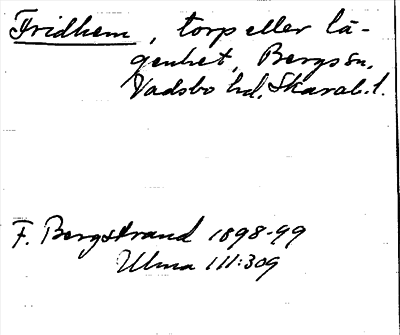 Fridhem, torp eller lä-
genhet, Bergs sn,
Vadsbo hd, Skarab. l.
F. Bergstrand 1898-99
Ulma 111:309